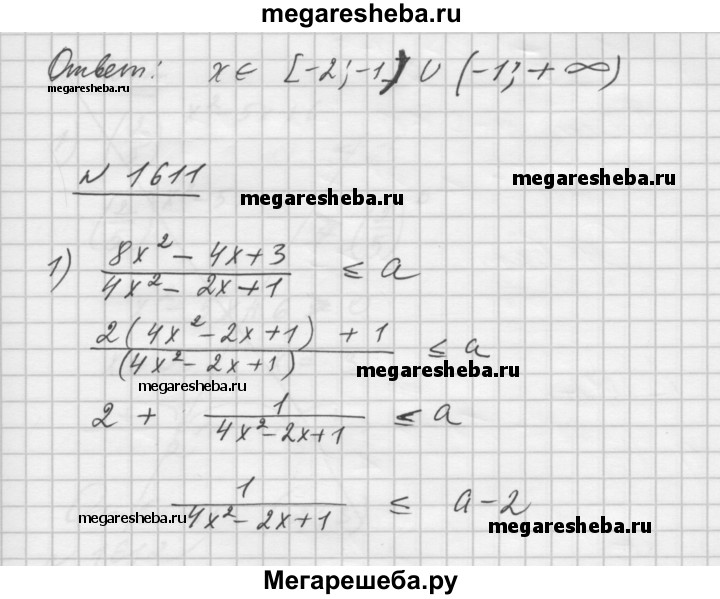 megaresheba.ru
Ответ: x ∈ [-2; -1) ∪ (-1; +∞)
megaresheba.ru
N 1611
megaresheba.ru
megaresheba.ru
1) (8x² - 4x + 3)/(4x² - 2x + 1) ≤ a
(2(4x² - 2x + 1) + 1)/((4x² - 2x + 1)) ≤ a
megaresheba.ru
megaresheba.ru
2 + 1/(4x² - 2x + 1) ≤ a
1/(4x² - 2x + 1) ≤ a - 2
megaresheba.ru
megaresheba.ru
Мегарешеба.ру